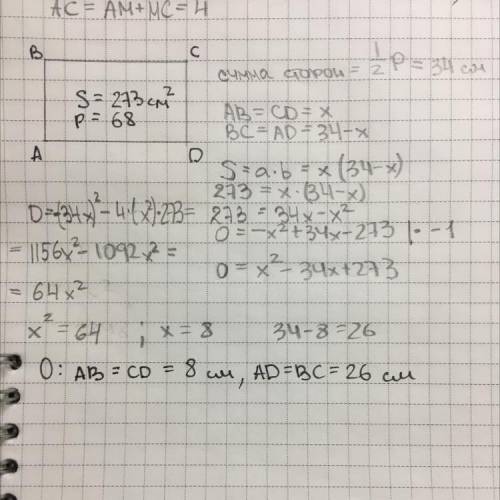 AC = AM+MC = 4
B C
S = 273 см²
P = 68
A D
сумма сторон = 1/2 P = 34 см
AB = CD = x
BC = AD = 34-x
S = a·b = x(34-x)
273 = x·(34-x)
273 = 34x-x²
0 = -x²+34x-273 |· -1
0 = x²-34x+273
D=(-34x)²-4·(x²)·273=
= 1156x²-1092x² =
= 64x²
x² = 64 ; x = 8 34-8=26
О: AB = CD = 8 см, AD=BC=26 см